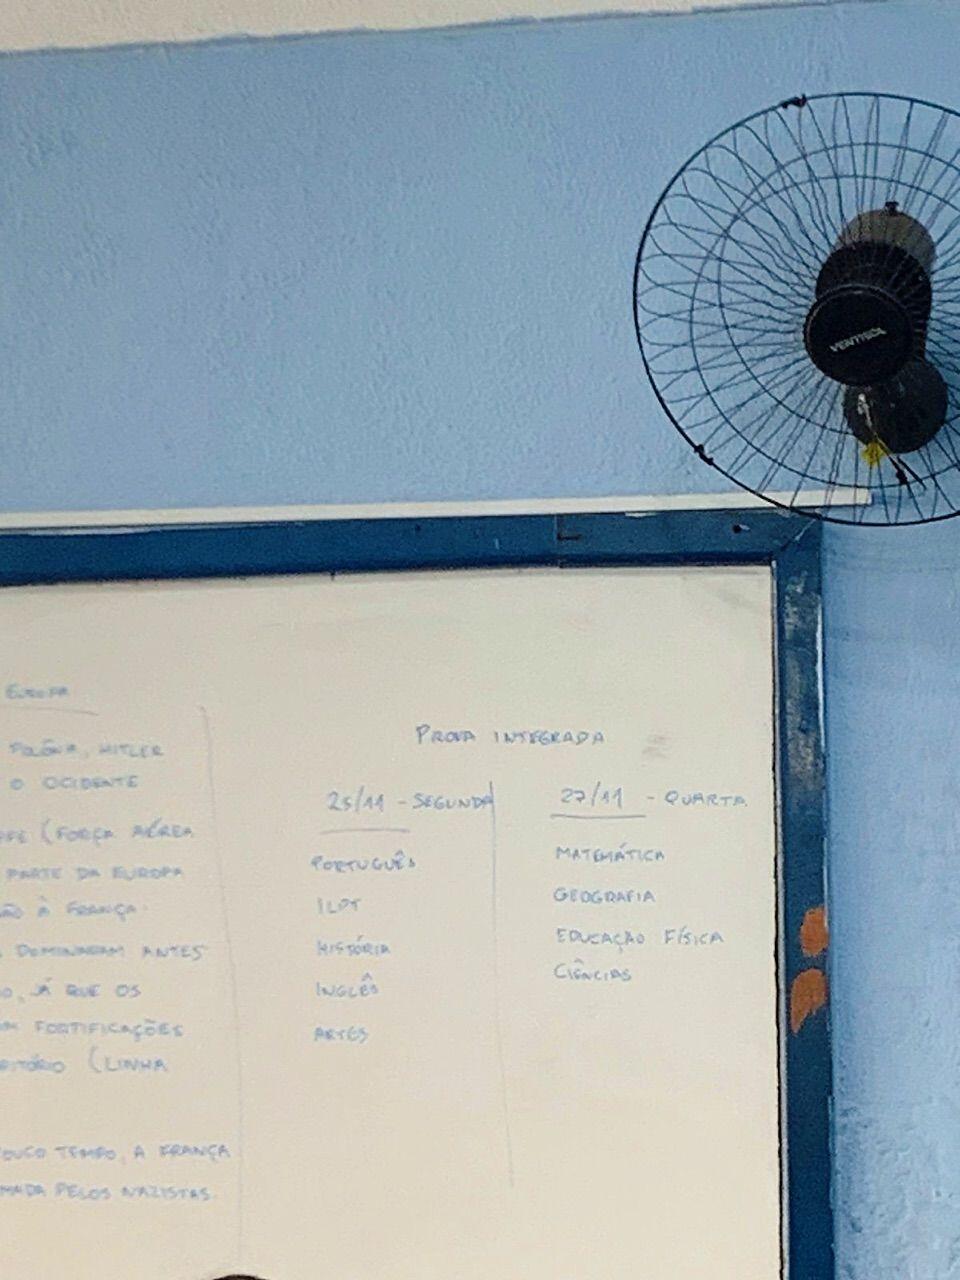 VENTISOL
EUROPA
POLÔNIA, HITLER
O OCIDENTE
(FORÇA AÉREA
PARTE DA EUROPA
À FRANÇA.
DOMINARAM ANTES
JÁ QUE OS
FORTIFICAÇÕES
(LINHA
TEMPO, A FRANÇA
PELOS NAZISTAS.
PROVA INTEGRADA
25/11 - SEGUNDA
PORTUGUÊS
ILPT
HISTÓRIA
INGLÊS
ARTES
27/11 - QUARTA
MATEMÁTICA
GEOGRAFIA
EDUCAÇÃO FÍSICA
CIÊNCIAS